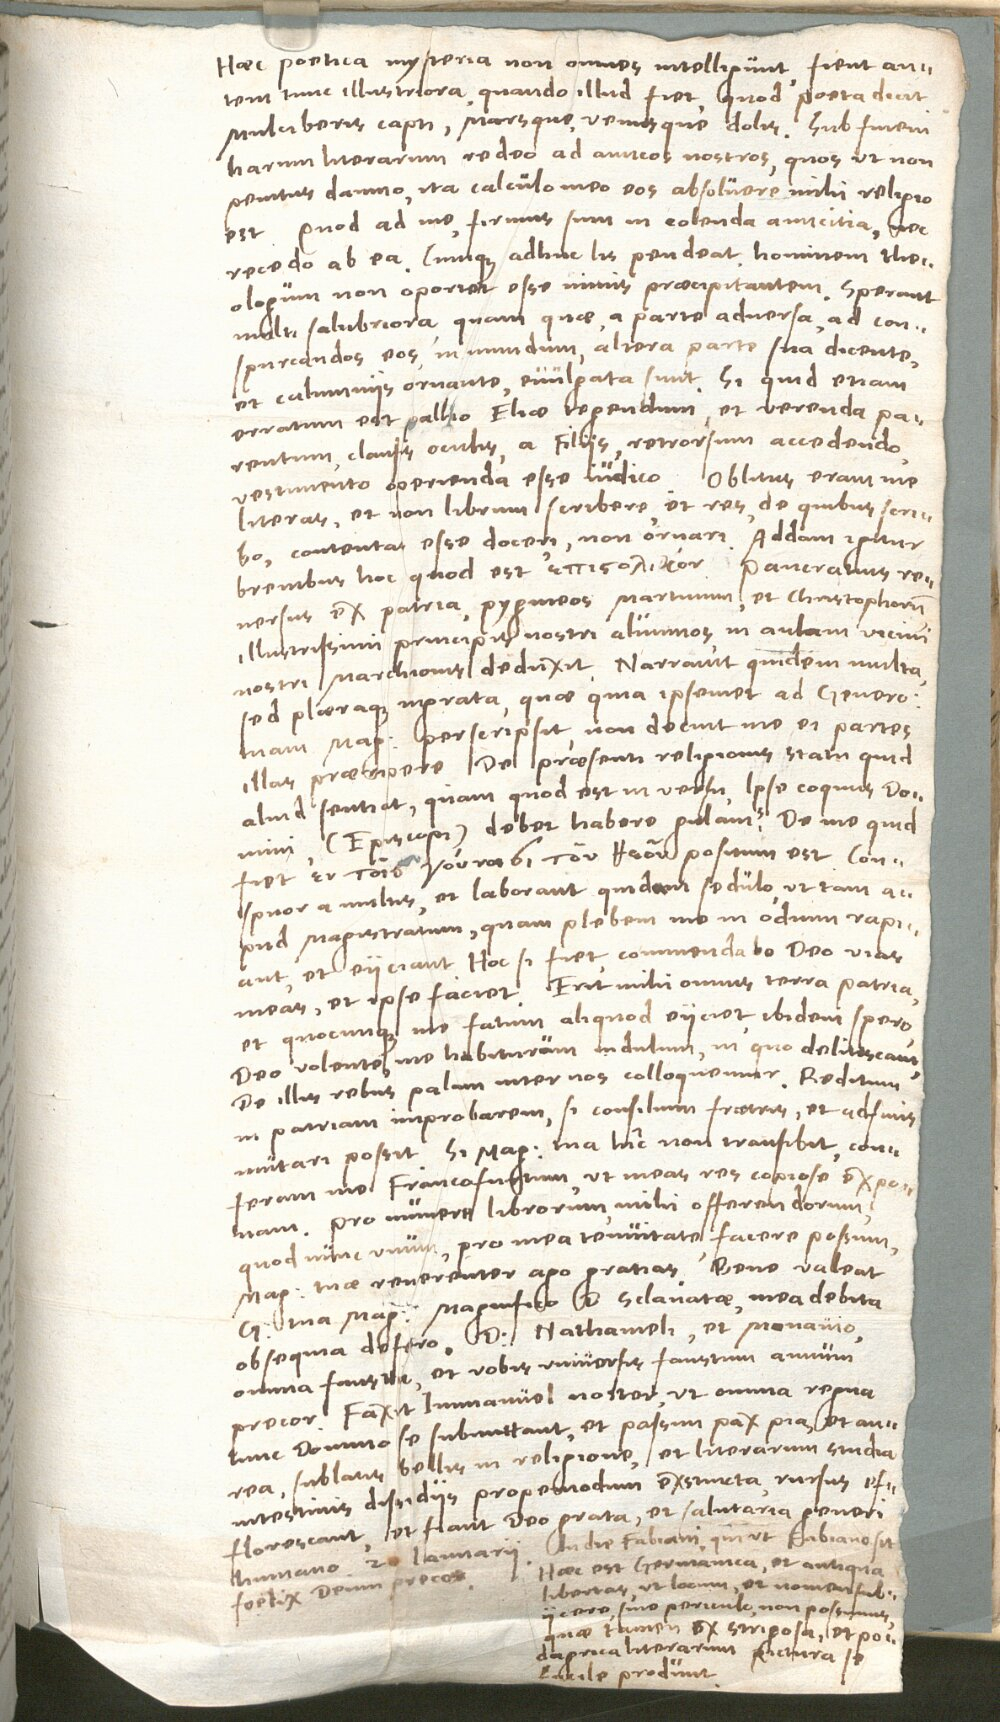 Hæc poetica mysteria non omnes intelligunt, fient au„
tem tunc illustriora, quando illud fiet, quod poeta dicit
Mulciberis capti, Marsque, Venusque dolis. Sub finem
harum literarum redeo ad amicos nostros, quos ut non
penitus damno, ita calculo meo eos absolvere mihi religio
est. Quod ad me, firmus sum in colenda amicitia, nec
recedo ab ea. Cumque adhuc lis pendeat, hominem the„
ologum non oportet esse nimis præcipitantem. Sperant
multi salubriora, quam quæ, a parte adversa, ad con„
spurcandos eos, in mundum, altera parte sua dicente,
et calumniis ornante, evulgata sunt. Si quid etiam
erratum est pallio Eliæ tegendum, et verenda pa„
rentum, clausis oculis, a Filiis, retrorsum accedendo,
vestimento operienda esse iudico. Oblitus eram me
literas, et non librum scribere, et res, de quibus scri„
bo, contentas esse doceri, non ornari. Addam igitur
brevibus hoc quod est ἐπιςολικόν. Pancratius re„
versus ex patria, pygmeos Martinum, et Christophorum
illustrissimi principis nostri alumnos, in aulam vicini
nostri Marchionis deduxit. Narravit quidem multa,
sed pleraque ingrata, quæ quia ipsemet ad Genero:
tuam Mag: perscripsit, non decuit me ei partes
illas præripere. De præsenti religionis statu quid
aliud sentiat, quam quod est in versu, Ipse coquus Do„
mini, (Episcopi) debet habere gulam? De me quid
fiet ἐν τοῖς γούνασι τῶν θεῶν positum est. Con„
spuor a multis, et laborant quidem sedulo, ut tam a„
pud Magistratum, quam plebem me in odium rapi„
ant, et eijciant. Hoc si fiet, commendabo Deo vias
meas, et ipse faciet. Erit mihi omnis terra patria,
et quocunque me fatum aliquod eijciet, ibidem spero,
Deo volente, me habiturum nidulum, in quo delitescam,
De illis rebus palam inter nos colloquemur. Reditum
in patriam improbarem, si consilium fratris, et adfinis
mutari possit. Si Mag: tua hic non transibit, con„
feram me Francofurtum, ut meas res copiose expo„
nam. Pro munere librorum, mihi offerendorum,
quod nunc unum, pro mea tenuitate, facere possum,
Mag: tuæ reverenter ago gratias. Bene valeat
G: tua Mag: Magnifico D Sclavatæ, mea debita
obsequia defero. D: Nathanieli, et Monavio,
omnia fausta, et vobis universis faustum annum
precor. Faxit Immanuel noster, ut omnia regna
tunc Domino se submittant, et passim pax pia, et au„
rea, sublatis bellis in religione, et literarum studia
intestinis dissidijs propemodum exstincta, rursus ef„
florescant, et fiant Deo grata, et salutaria generi
humano. 20 Ianuarij. (in die Fabiani, qui ut Fabiano sit
foelix Deum precor.
Hæc est Germanica, et antiqua
libertas, ut locum, et nomen sub„
ijcere, sine periculo, non possimus,
quæ tamen ex strigosa, et po„
dagrica literarum pictura se
facile produnt.